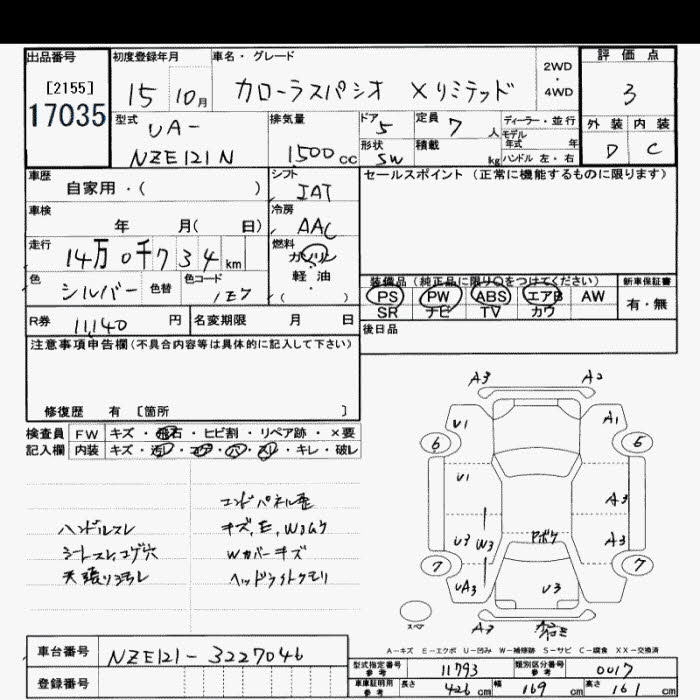 出品番号
[2155]
17035
初度登録年月
15 10月
車名・グレード
カローラスパシオ Xリミテッド
2WD
・
4WD
評価点
3
外装 内装
D C
型式
UA-
NZE121N
排気量
1500cc
ドア
5
定員
7人
形状
SW
積載
kg
ディーラー・並行
モデル
年式 年
ハンドル 左・右
車歴
自家用・( )
シフト
IAT
車検
年 月( 日)
冷房
AAC
走行
14万0千734km
燃料
ガソリン
軽油
( )
色
シルバー
色替
色コード
1E7
R券
11,140円
名変期限 月 日
セールスポイント (正常に機能するものに限ります)
装備品 (純正品に限り○をつけてください)
新車保証書
PS PW ABS エアB AW
有・無
SR ナビ TV カワ
後日品
注意事項申告欄(不具合内容等は具体的に記入して下さい)
修復歴 有 [箇所 ]
検査員 FW キズ・飛石・ヒビ割・リペア跡・×要
記入欄 内装 キズ・汚レ・コゲ・穴・スレ・キレ・破レ
コンドパネル歪
ハンドルスレ
キズ,E,Wムラ
シートスレ,コゲ穴
Wカバーキズ
天張り汚レ
ヘッドライトクモリ
A3 A2
U1 A1
6 6
U1
A3
U3 W3 Pボケ A3
7 7
UA3 U3
スペア
A3 A2
A-キズ E-エクボ U-凹み W-補修跡 S-サビ C-腐食 XX-交換済
車台番号
NZE121-3227046
登録番号
型式指定番号
参考
11793
類別区分番号
参考
0017
車庫証明用
参考
長さ 426cm 幅 169cm 高さ 161cm